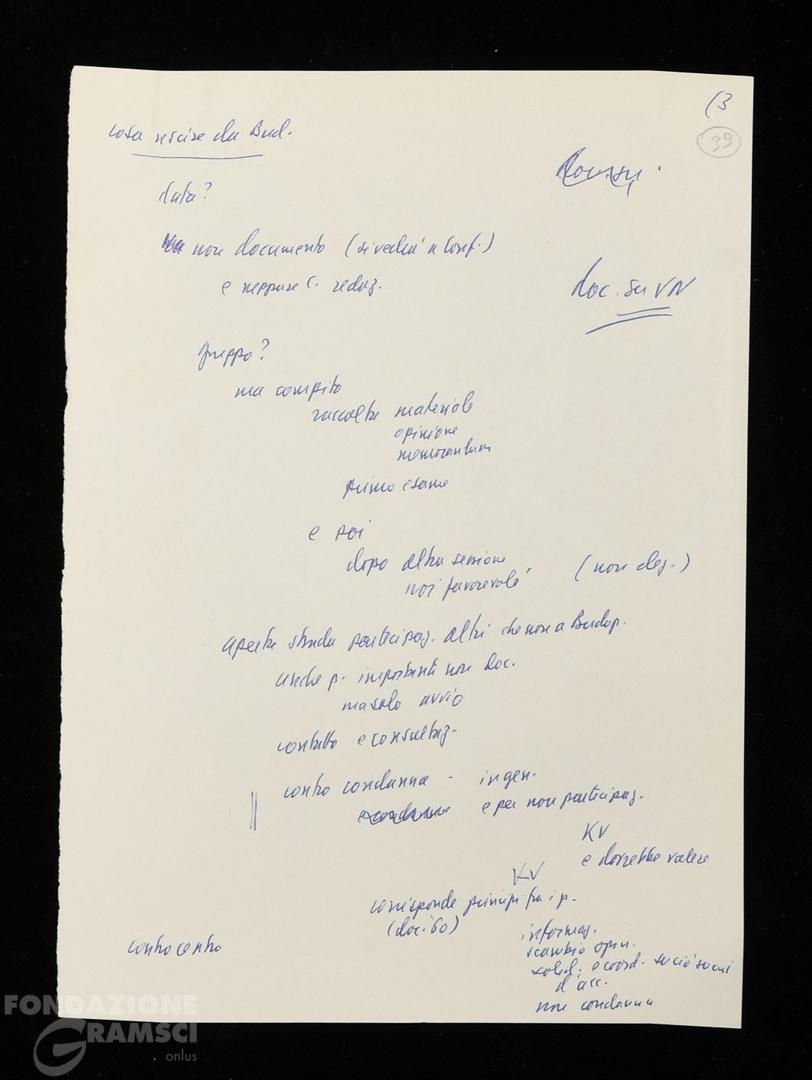 (3
39
cosa uscire da Bud.
data?
non documento (si vedrà a Conf.)
e neppure C. redaz.
doc. su VN
gruppo?
ma compito
raccolta materiale
opinione
memorandum
primo esame
e poi
dopo altra sessione
noi favorevoli (non deg.)
aperta strada partecipaz. altri che non a Budap.
anche p. importanti non doc.
ma solo avvio
contatto e consultaz.
contro condanna - ingen.
e per non partecipaz.
KV
e dovrebbe valere
KV
corrisponde principi fra i p.
(doc. '60)
informaz.
scambio opin.
solid. e coord. su ciò su cui
d'acc.
non condanna
contro centro
FONDAZIONE
GRAMSCI
onlus